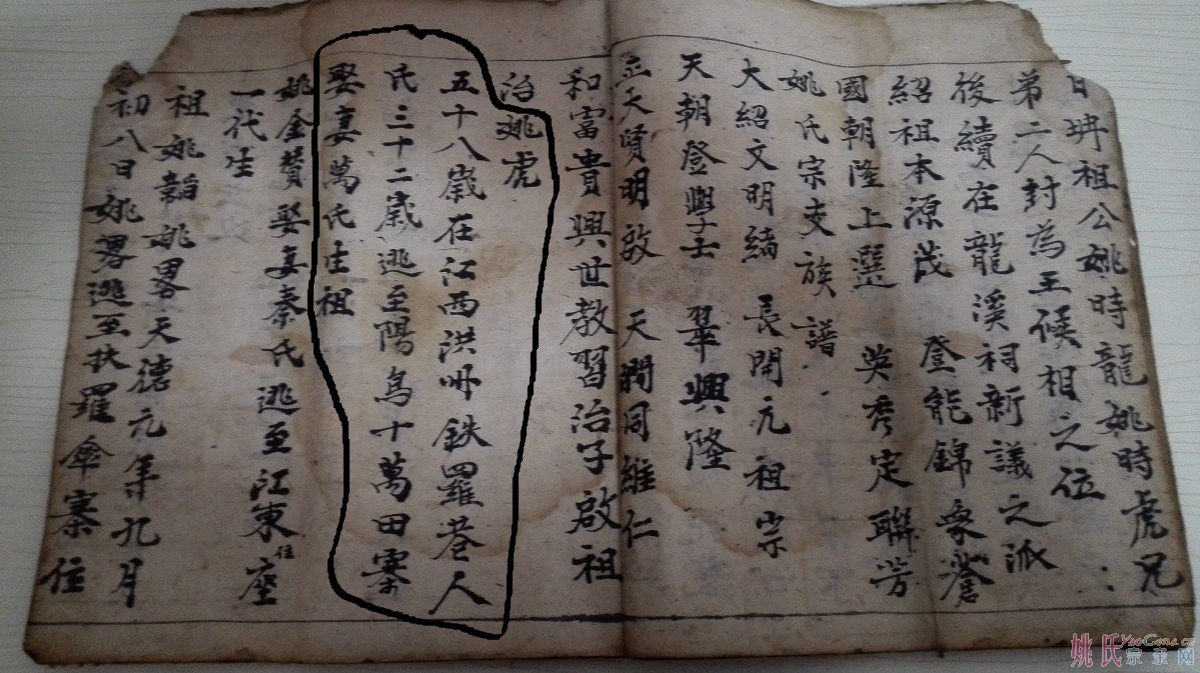 日坍祖公姚時龍姚時虎兄
弟二人封為王候相之位
後續在龍溪祠新議之派
紹祖本源茂 登能錦衆
國朝隆上選 英秀定聯芳
姚氏宗支族譜
大紹文明緒 長開元祖宗
天朝登興士 翠興隆
立天賢明啟 天潤同維仁
和富貴興世教習治子啟祖
治姚虎
五十八歲在江西洪州鉄羅巷人
氏三十二歲逃至陽烏十萬田寨
娶妻萬氏生祖
姚金賛娶妻秦氏逃至江東住座
一代生
祖姚韜姚畧天德元年九月
初八日姚畧逃至扶羅傘寨住
姚氏 YaoGens.cn
宗亲网